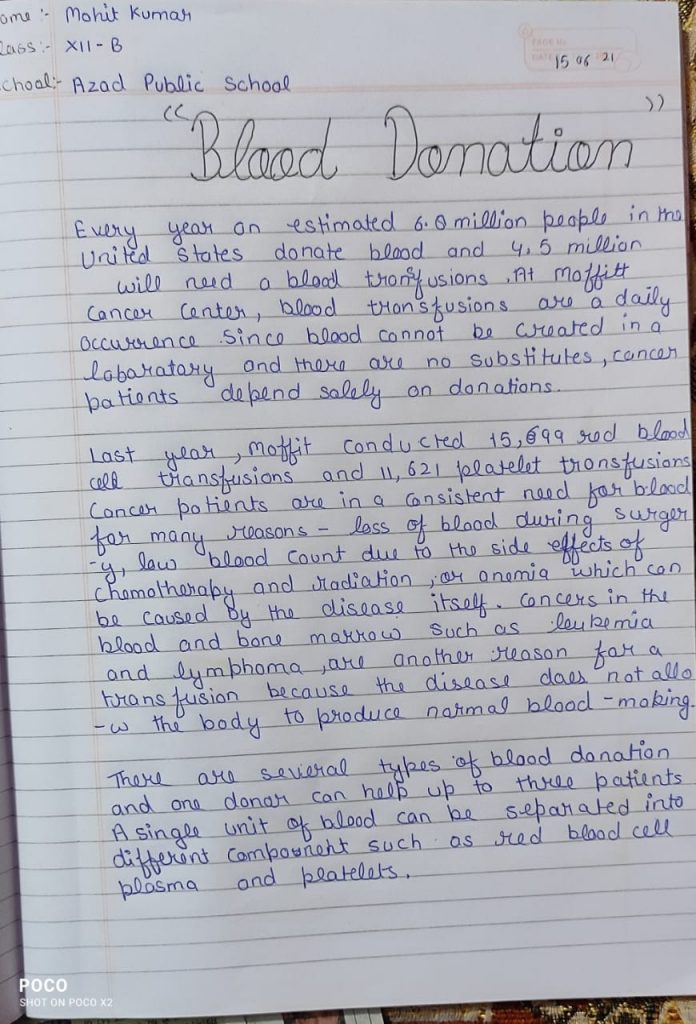 ame :- Mohit Kumar
lass :- XII - B
chool :- Azad Public School
PAGE No
DATE 15 06 21
“Blood Donation”
Every year an estimated 6.8 million people in the
United States donate blood and 4,5 million
will need a blood transfusions. At Moffitt
Cancer Center, blood transfusions are a daily
occurrence since blood cannot be created in a
labaratary and there are no substitutes, cancer
patients depend solely on donations.
Last year, moffit conducted 15,699 red blood
cell transfusions and 11,621 platelet transfusions
Cancer patients are in a consistent need for blood
for many reasons - loss of blood during surger
-y, low blood count due to the side effects of
chemotherapy and radiation, or anemia which can
be caused by the disease itself. Cancers in the
blood and bone marrow such as leukemia
and lymphoma, are another reason for a
transfusion because the disease does not allo
-w the body to produce normal blood - making.
There are several types of blood donation
and one donar can help up to three patients
A single unit of blood can be separated into
different compaonent such as red blood cell
plasma and platelets.
POCO
SHOT ON POCO X2